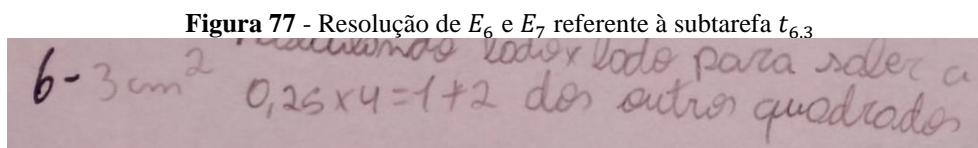 Figura 77 - Resolução de E₆ e E₇ referente à subtarefa t₆.₃
lado x lado para saber a
6- 3 cm² 0,25 x 4 = 1 + 2 dos outros quadrados